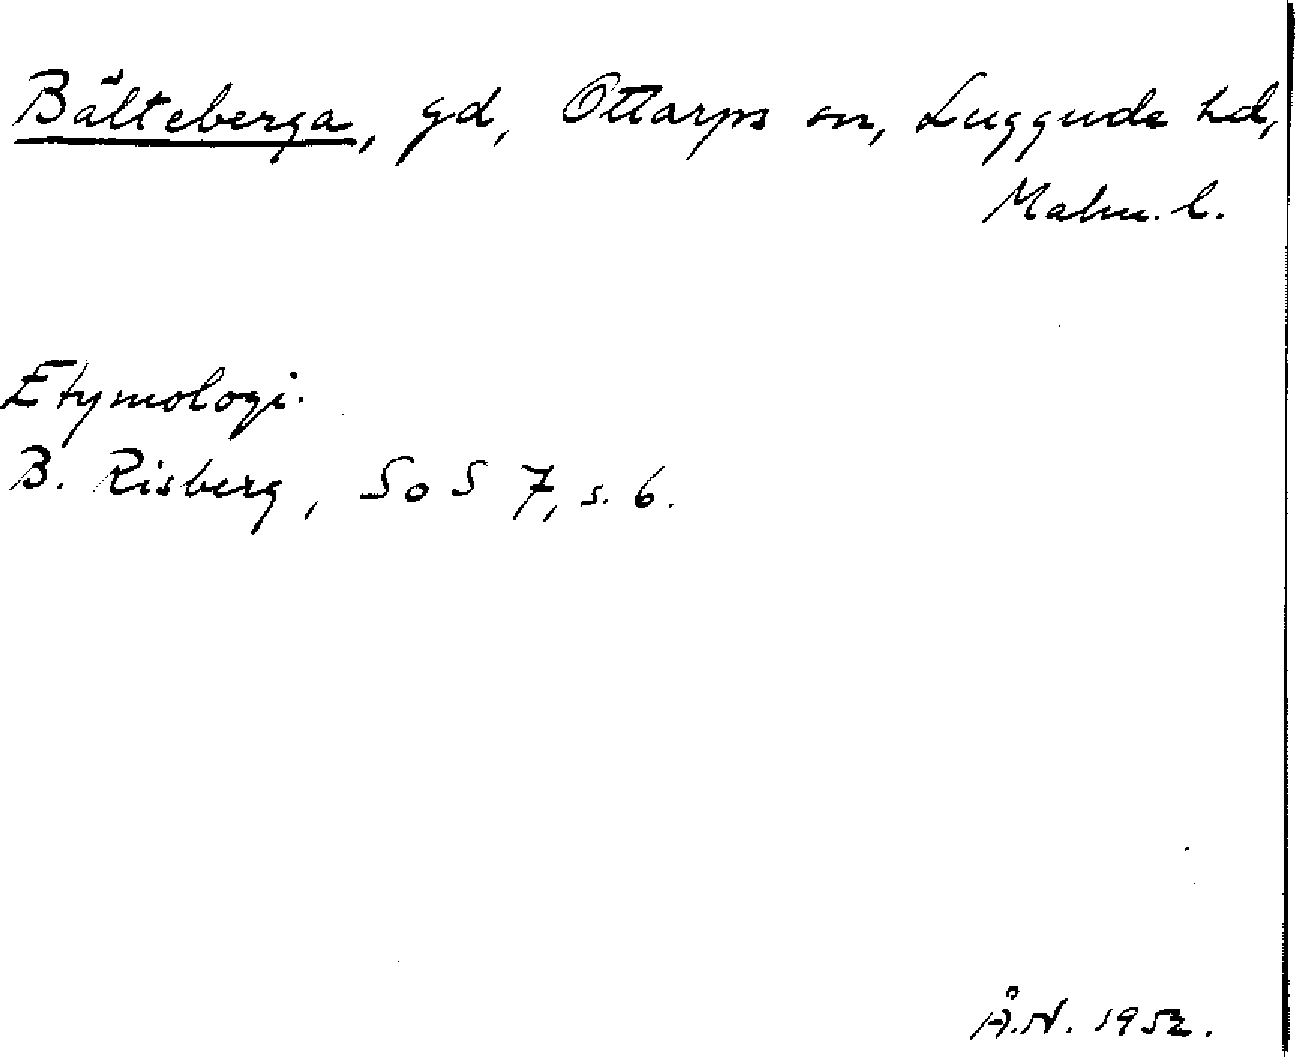 Bälteberga, gd, Ottarps sn, Luggude hd,
Malm. l.
Etymologi.
B. Risberg, SoS 7, s. 6.
Å.N. 1952.